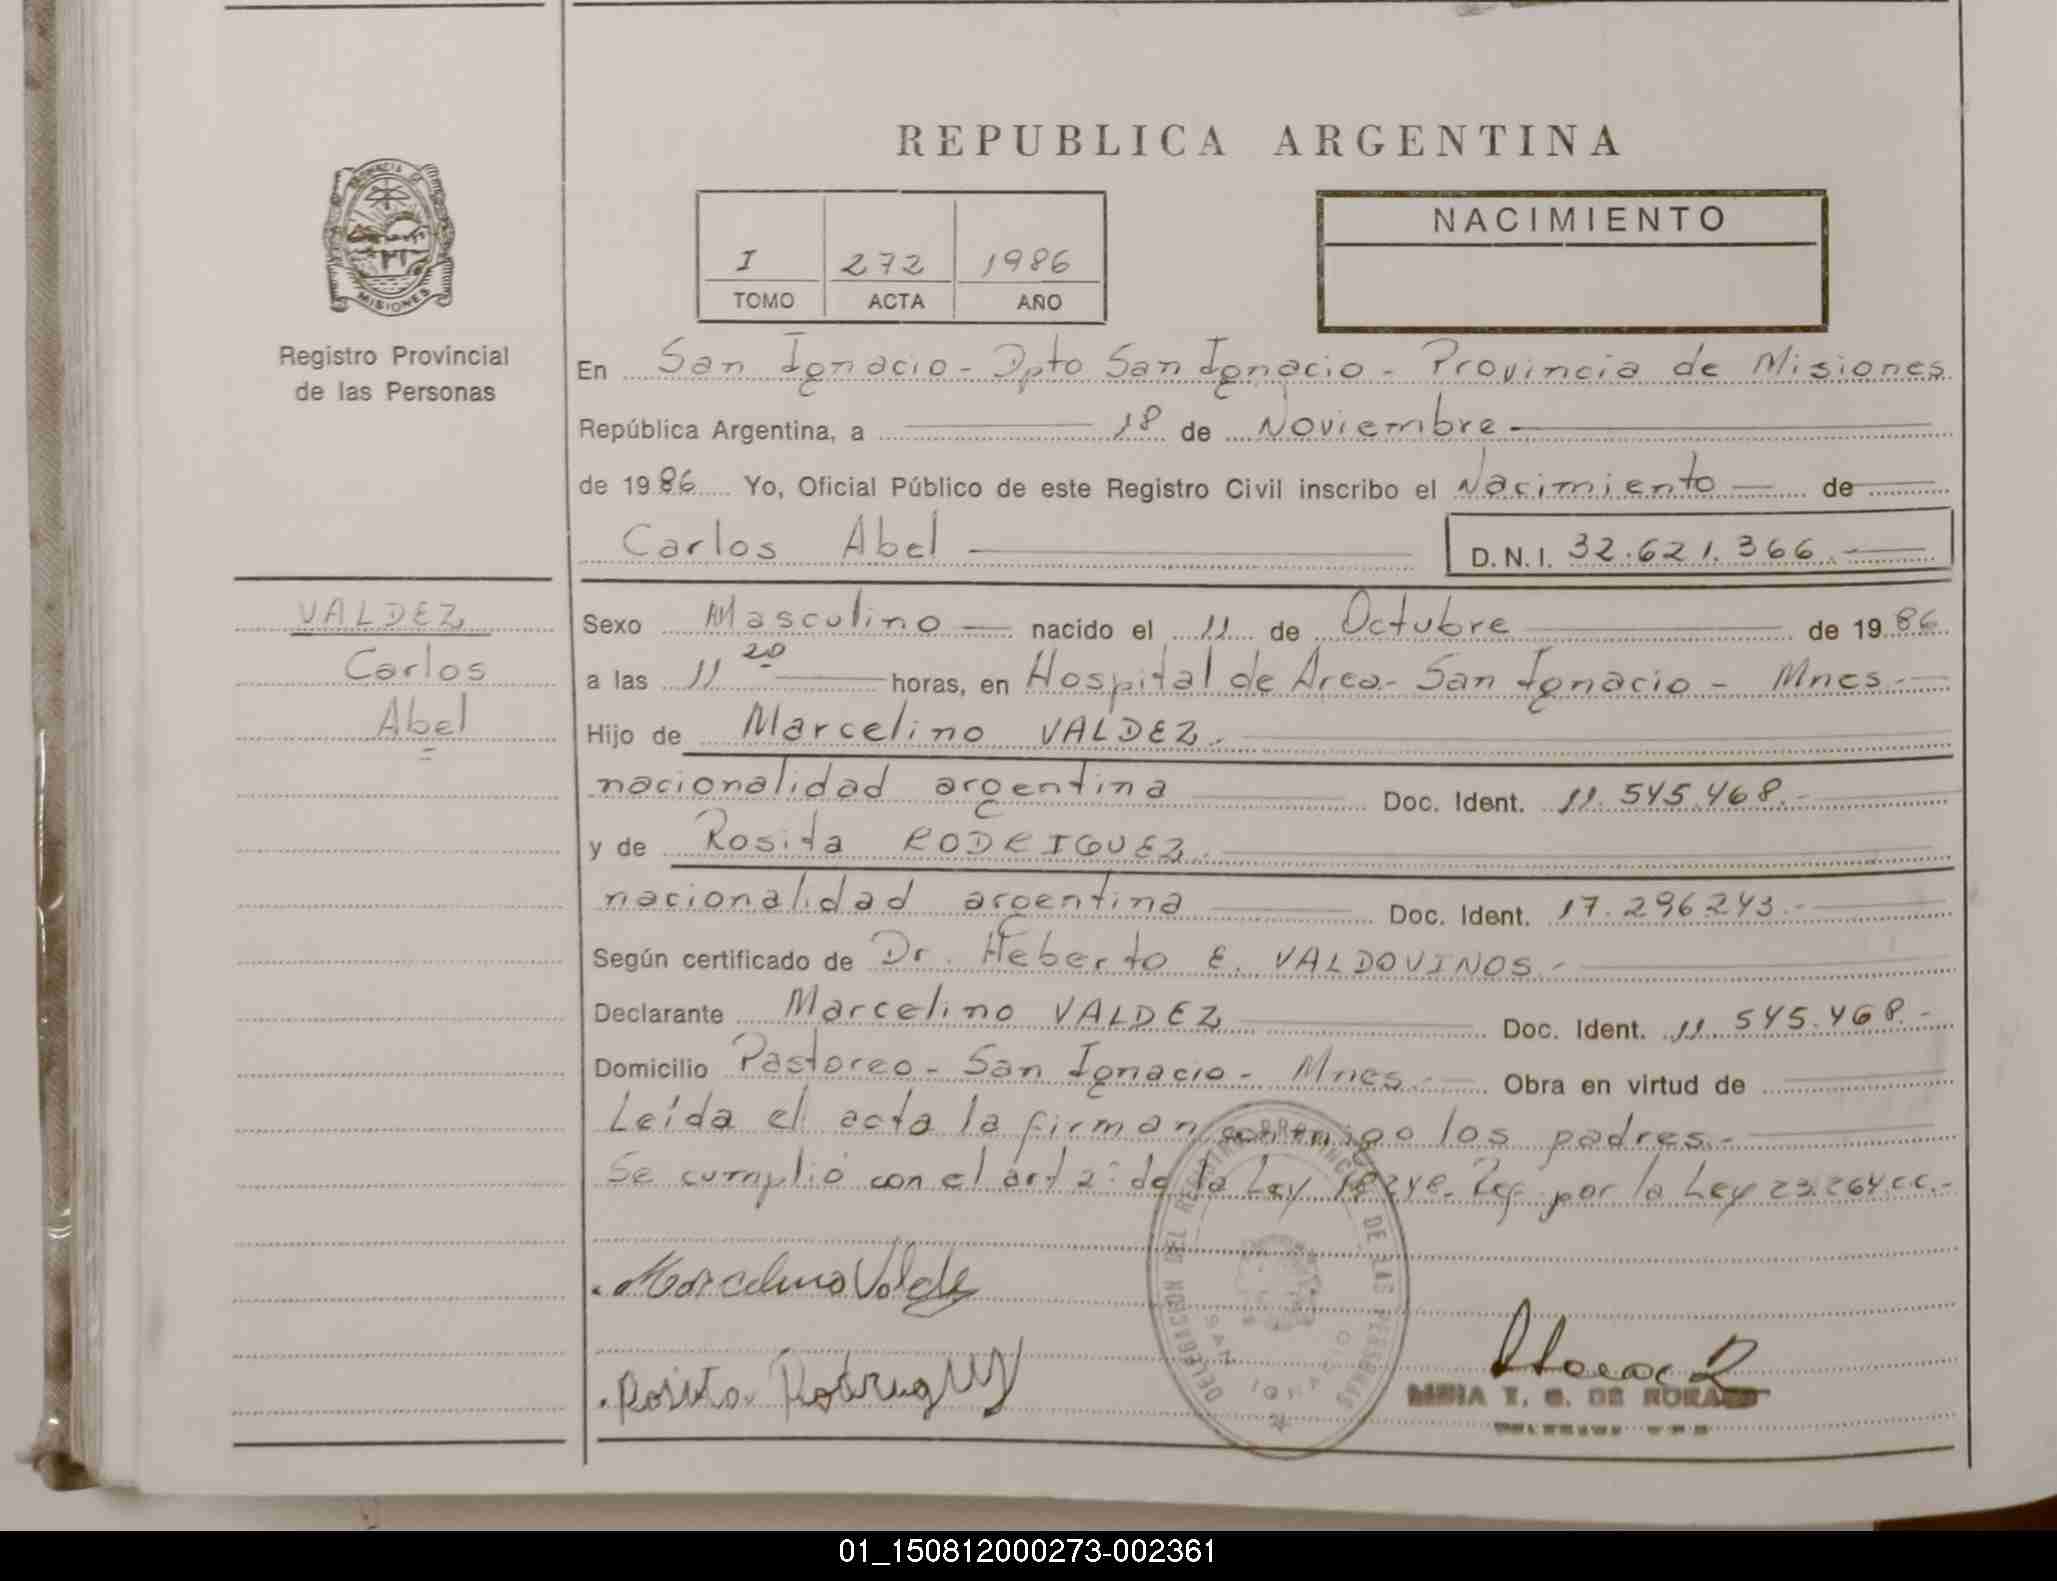 REPUBLICA ARGENTINA
PROVINCIA DE
MISIONES
Registro Provincial
de las Personas
I 272 1986
TOMO ACTA AÑO
NACIMIENTO
En San Ignacio - Dpto San Ignacio - Provincia de Misiones
República Argentina, a 18 de Noviembre
de 1986 Yo, Oficial Público de este Registro Civil inscribo el Nacimiento de
Carlos Abel D.N.I. 32.621.366.-
VALDEZ
Carlos
Abel
Sexo Masculino nacido el 11 de Octubre de 1986
a las 11 20 horas, en Hospital de Area - San Ignacio - Mnes -
Hijo de Marcelino VALDEZ.
nacionalidad argentina Doc. Ident. 11.545.468.-
y de Rosita RODRIGUEZ.
nacionalidad argentina Doc. Ident. 17.296243.-
Según certificado de Dr. Heberto E. VALDOVINOS.-
Declarante Marcelino VALDEZ Doc. Ident. 11.545.468.-
Domicilio Pastoreo - San Ignacio - Mnes.- Obra en virtud de
Leída el acta la firman conmigo los padres.-
Se cumplió con el art 2: de la Ley 18248. por la Ley 23.264 CC.-
DELEGACION DEL REGISTRO PROVINCIAL DE LAS PERSONAS
SAN IGNACIO
Marcelino Valdez
Rosita Rodriguez
T. G. DE
01_150812000273-002361